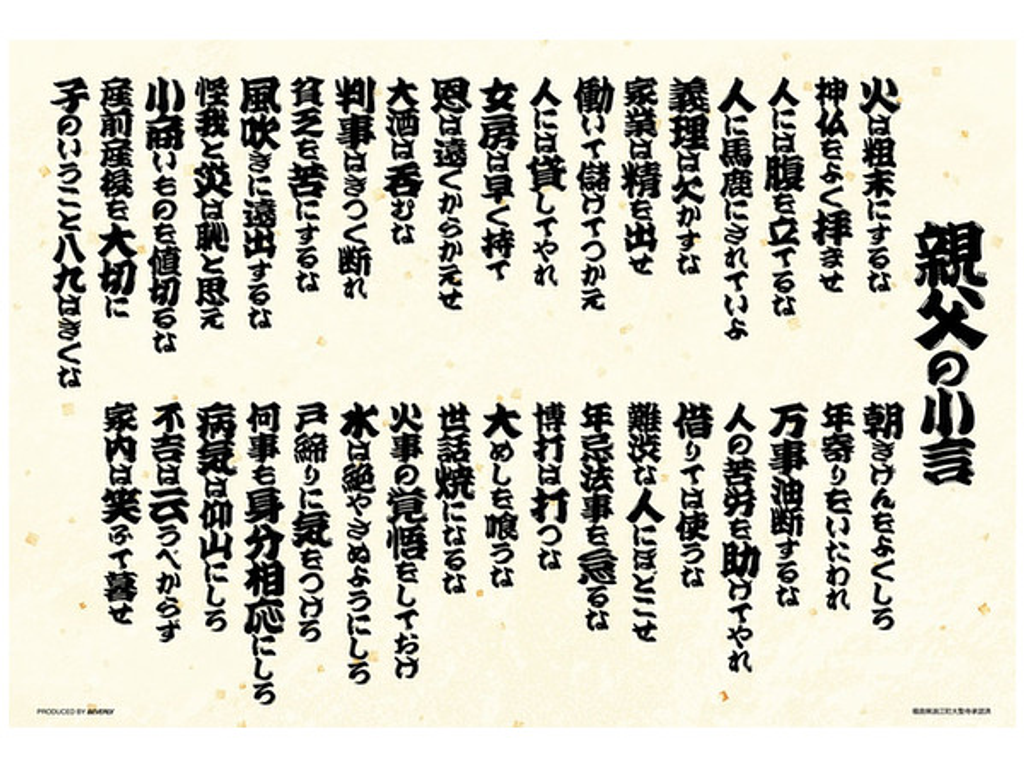 親父の小言
火は粗末にするな
神仏をよく拝ませ
人には腹を立てるな
人に馬鹿にされていよ
義理は欠かすな
家業は精を出せ
働いて儲けてつかえ
人には貸してやれ
女房は早く持て
恩は遠くからかえせ
大酒は呑むな
判事はきつく断れ
貧乏を苦にするな
風吹きに遠出するな
怪我と災は恥と思え
小商いものを値切るな
産前産後を大切に
子のいうこと八九はきくな
朝きげんをよくしろ
年寄りをいたわれ
万事油断するな
人の苦労を助けてやれ
借りては使うな
難渋な人にほどこせ
年忌法事を忘るな
博打は打つな
大めしを喰うな
世話焼になるな
火事の覚悟をしておけ
水は絶やさぬようにしろ
戸締りに気をつけろ
何事も身分相応にしろ
病気は仰山にしろ
不吉は云うべからず
家内は笑ふて暮せ
PRODUCED BY BEVERLY
福島県浪江町大聖寺承認済